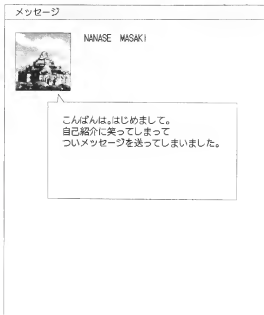 メッセージ
NANASE MASAKI
こんばんは。はじめまして。
自己紹介に笑ってしまって
ついメッセージを送ってしまいました。